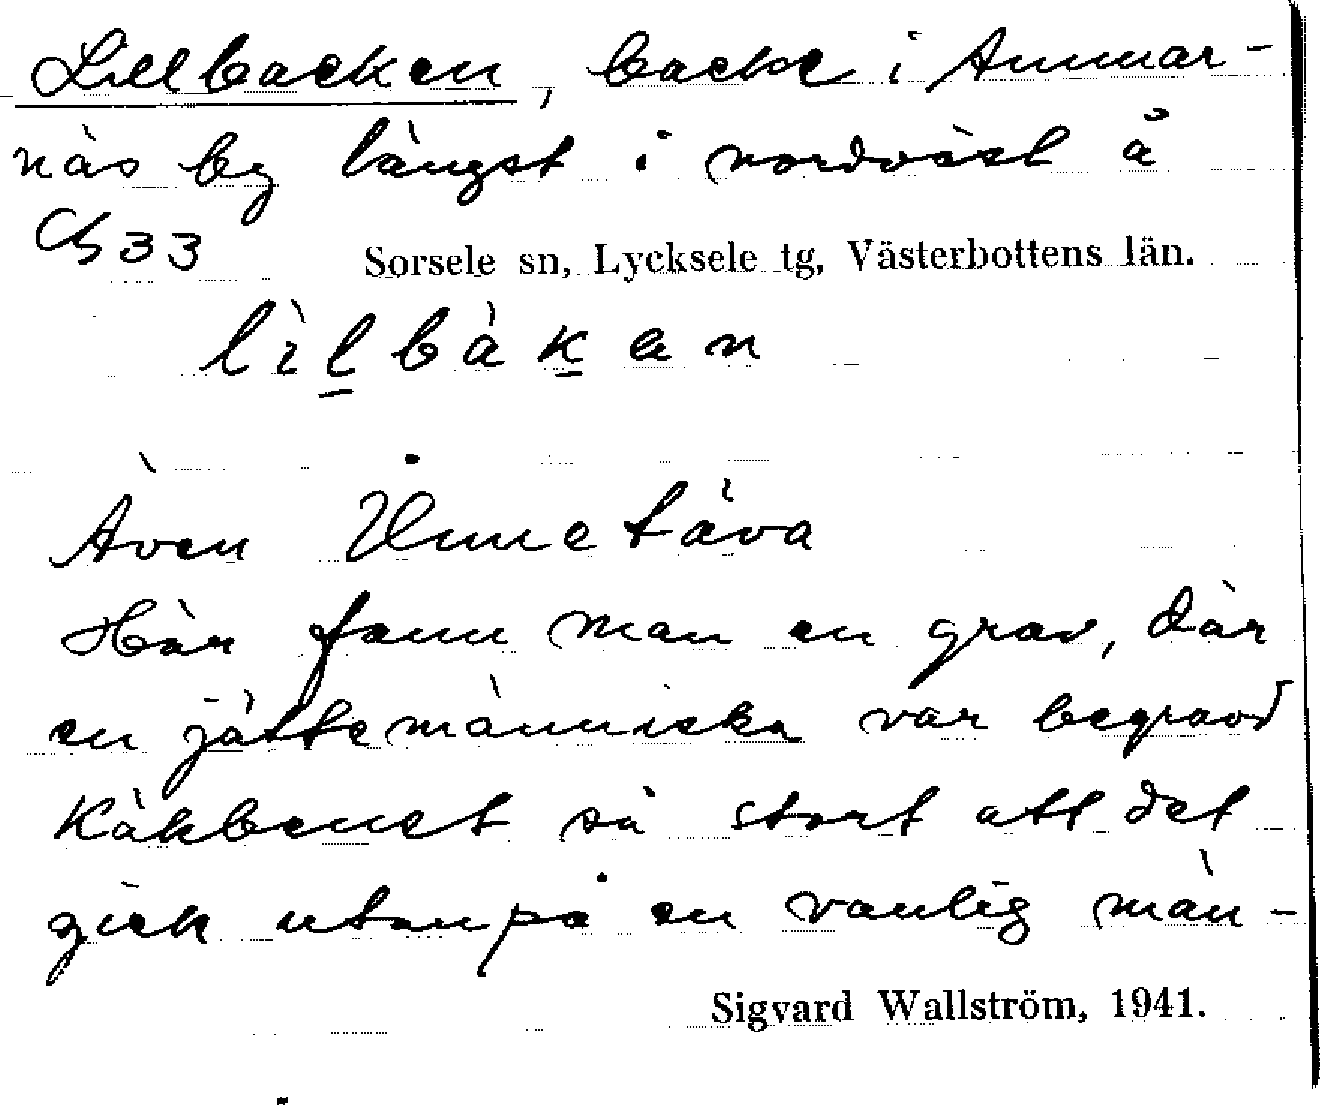 Lillbacken, backe i Ammar-
näs by längst i nordväst å
Ch 33
Sorsele sn, Lycksele tg, Västerbottens län.
lìlbàken
Även
Här fann man en grav, där
en jättemänniska var begravd
Käkbenet så stort att det
gick utanpå en vanlig män-
Sigvard Wallström, 1941.